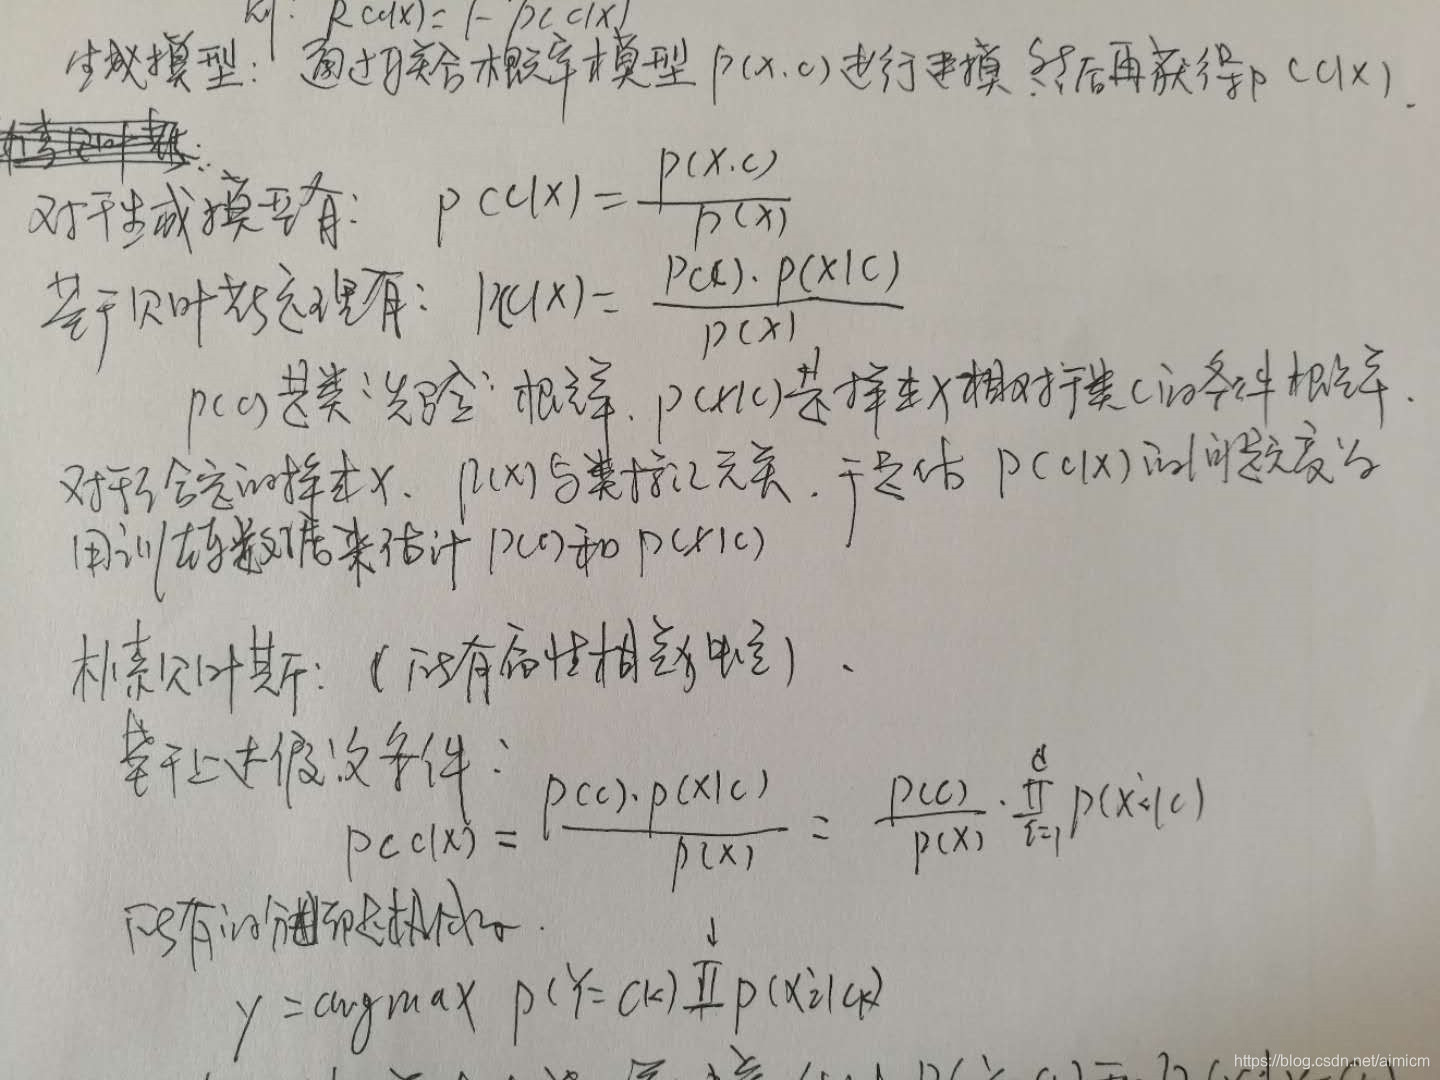 则: R(c|x)=1-P(c|x)
生成模型: 通过联合概率模型 p(x.c)进行建模 然后再获得p(c|x).
对于生成模型有: p(c|x)=p(x.c)/p(x)
基于贝叶斯定理有: p(c|x)=p(c).p(x|c)/p(x)
p(c)是类"先验"概率. p(x|c)是样本x相对于类c的条件概率.
对于给定的样本x. p(x)与类标记无关. 于是估 p(c|x)的问题变为
用训练数据来估计 p(c)和 p(x|c)
朴素贝叶斯: (所有属性相互独立).
基于上述假设条件:
p(c|x)=p(c).p(x|c)/p(x)=p(c)/p(x).∏ d i=1 p(xi|c)
所有的
↓
y=argmax p(Y=ck)∏p(xi|ck)
https://blog.csdn.net/aimicm